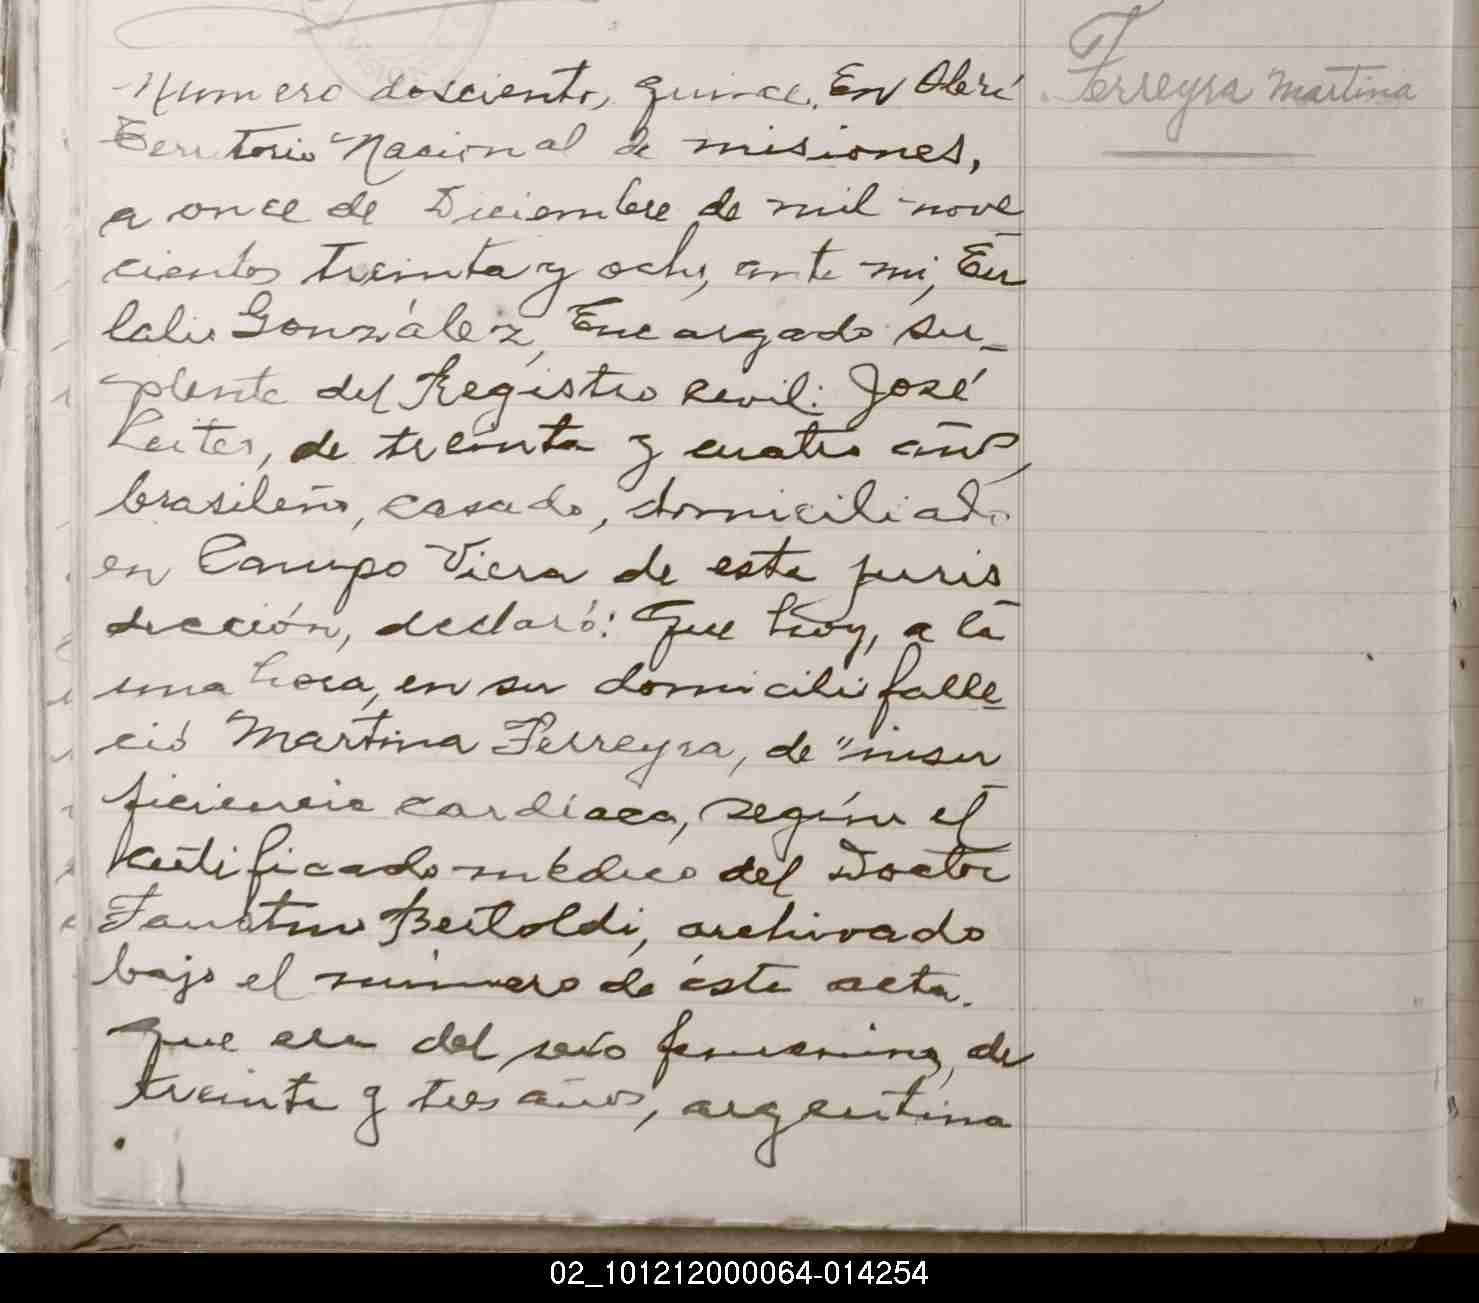 Numero doscientos quince. En Oberá
Ferreyra Martina
Territorio Nacional de misiones,
a once de Diciembre de mil nove
cientos treinta y ocho, ante mi, Eu
lalio González, Encargado su_
plente del Registro Civil: José
Leites, de treinta y cuatro años,
brasileño, casado, domiciliado
en Campo Viera de esta juris
dicción, declaró: Que hoy, a la
una hora, en su domicilio falle
ció Martina Ferreyra, de "insu
ficiencia cardíaca, según el
certificado médico del Doctor
Faustino Bertoldi, archivado
bajo el número de ésta acta.
Que era del sexo femenino, de
treinta y tres años, argentina
02_101212000064-014254